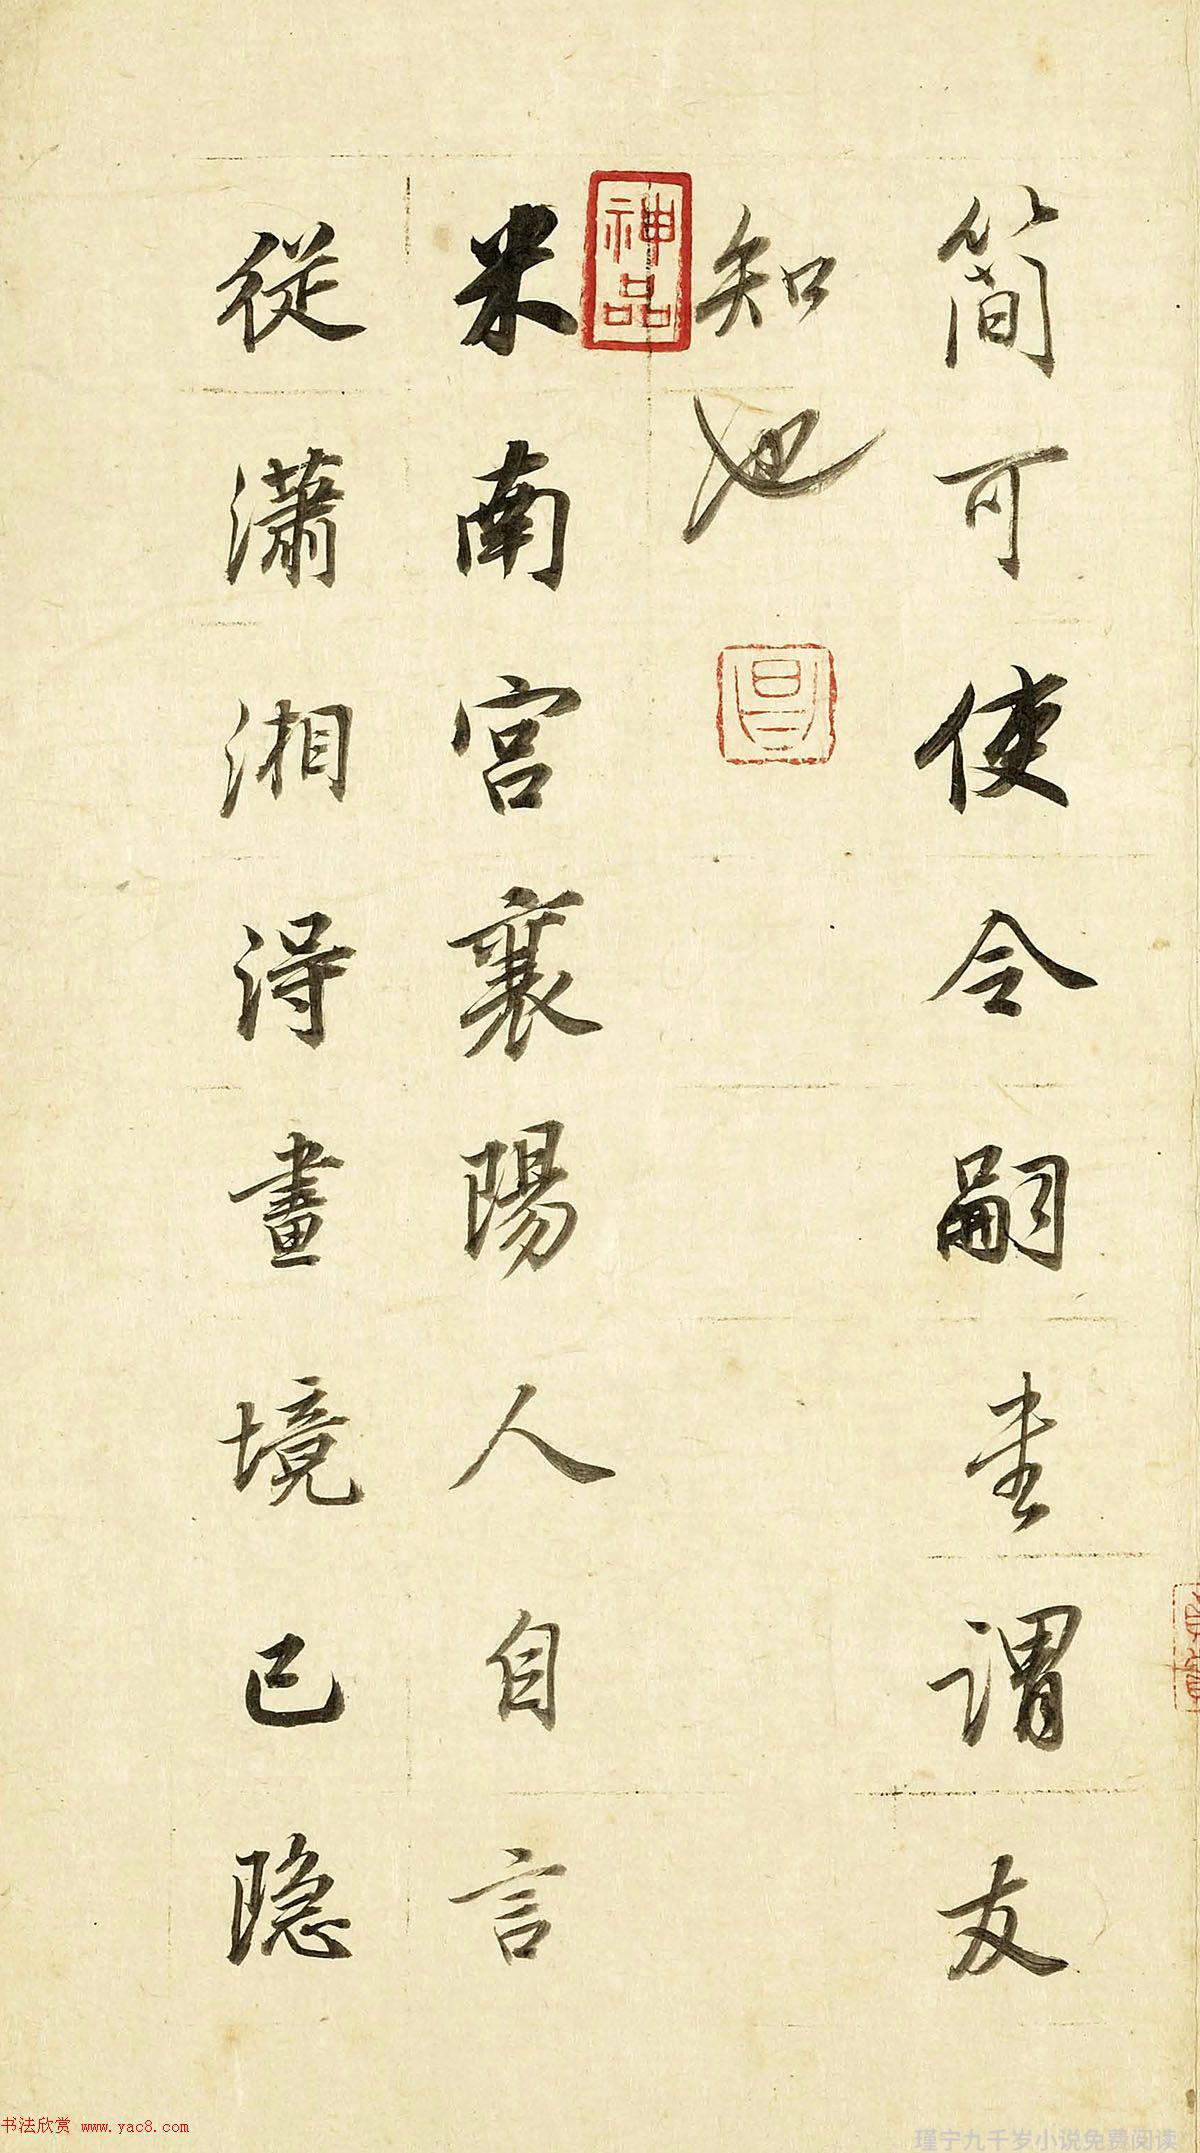 简可使令嗣圭谓友
知也
米南宫襄陽人自言
從瀟湘得畫境已隐
神品
昌
书法欣赏 www.yac8.com
瑾宁九千岁小说免费阅读